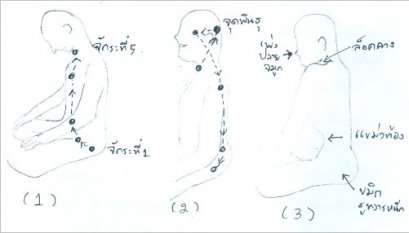 จักระที่5
จักระที่1
(1)
จุดพินธุ
(2)
เพ่ง
ปลาย
จมูก
ล็อคคาง
แขม่วท้อง
ขมิก
รูทวารหนัก
(3)